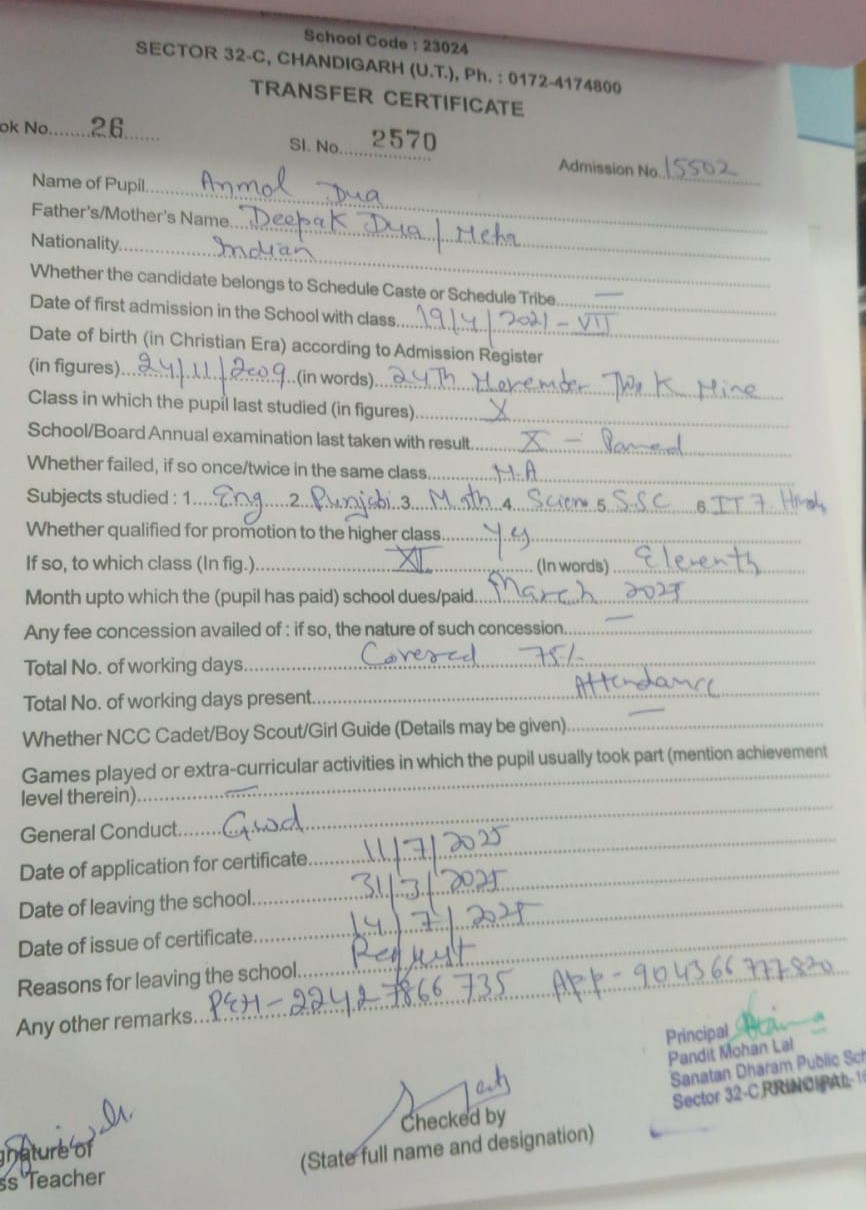 School Code : 23024
SECTOR 32-C, CHANDIGARH (U.T.), Ph. : 0172-4174800
TRANSFER CERTIFICATE
ok No........26......
Sl. No....2570
Admission No.15502
Name of Pupil....Anmol Dua
Father's/Mother's Name..Deepak Dua / Neha
Nationality..............Indian
Whether the candidate belongs to Schedule Caste or Schedule Tribe.... —
Date of first admission in the School with class....19/4/2021 - VII
Date of birth (in Christian Era) according to Admission Register
(in figures)...24/11/2009..(in words)..24Th November Two K Nine
Class in which the pupil last studied (in figures)..............X
School/Board Annual examination last taken with result........X - Passed
Whether failed, if so once/twice in the same class............N.A
Subjects studied : 1....Eng....2..Punjabi.3...Math.4...Scien.5.S.SC 6.IT 7. Hindi
Whether qualified for promotion to the higher class.......Yes
If so, to which class (In fig.)..............XI..............(In words) Eleventh
Month upto which the (pupil has paid) school dues/paid...March 2025
Any fee concession availed of : if so, the nature of such concession........ —
Total No. of working days..............Covered 75%
Total No. of working days present..............Attendance
Whether NCC Cadet/Boy Scout/Girl Guide (Details may be given)...... —
Games played or extra-curricular activities in which the pupil usually took part (mention achievement
level therein)............ —
General Conduct.......Good
Date of application for certificate..........11/7/2025
Date of leaving the school..............31/3/2025
Date of issue of certificate..............14/7/2025
Reasons for leaving the school.......Request
Any other remarks...PEN-22427866735 APP-904366777820
Principal
Pandit Mohan Lal
Sanatan Dharam Public Sch
Sector 32-C,
PRINCIPAL
Checked by
(State full name and designation)
gnature of
ss Teacher